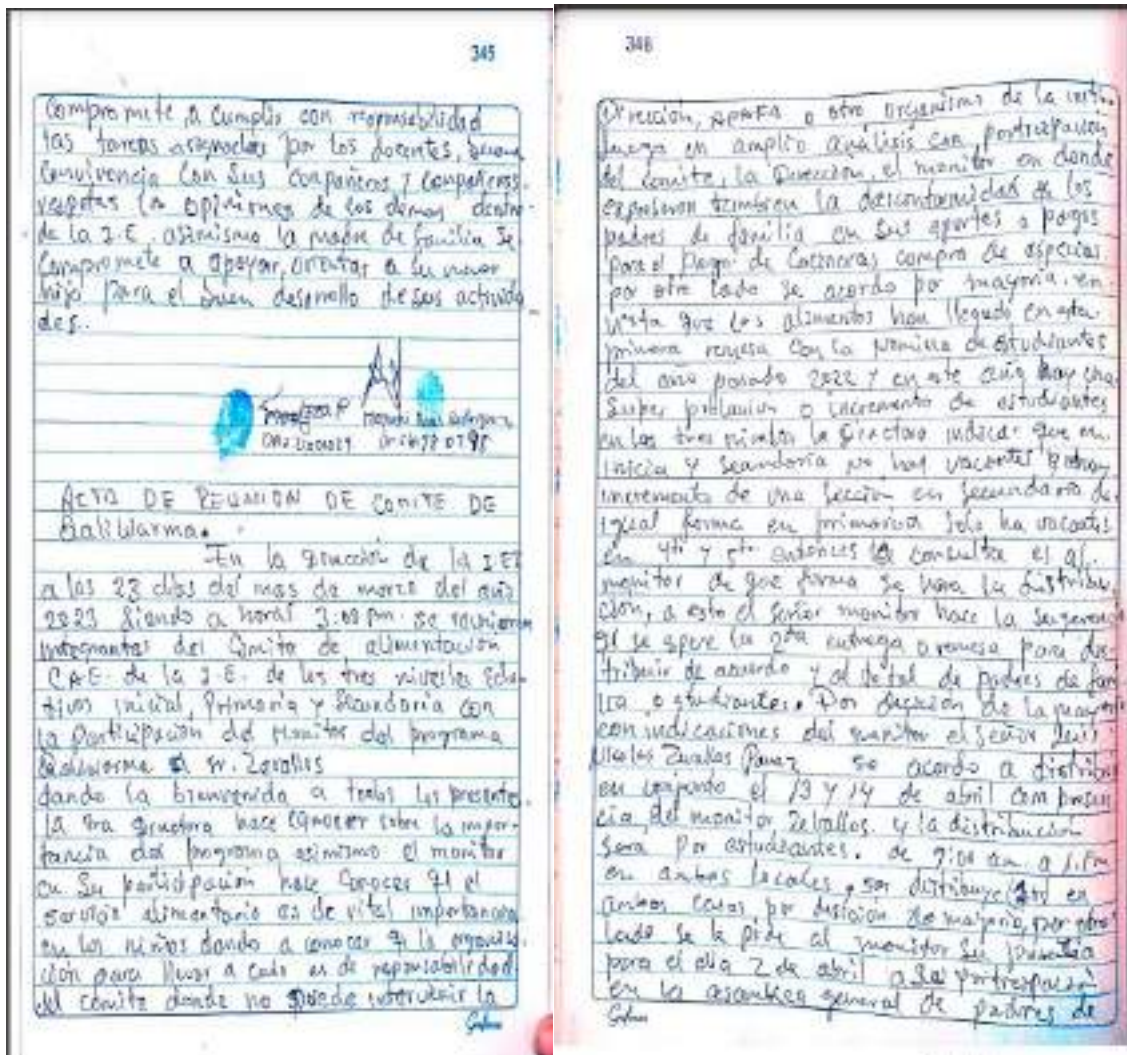 345
compromete a cumplir con responsabilidad
las tareas asignadas por los docentes, buena
convivencia con sus compañeros y compañeras.
respetar las opiniones de los demas dentro
de la I.E, asimismo la madre de familia se
compromete a apoyar, orientar a su menor
hijo para el buen desarrollo de sus activida
des..
ACTA DE REUNION DE COMITE DE
Qaliwarma.
En la Dirección de la IEI
a los 23 días del mes de marzo del año
2023 Siendo a horas 3:00 pm. se reunieron
integrantes del Comite de alimentación
CAE. de la I.E. de los tres niveles Edu-
tivos inicial, Primaria y Secundaria con
la participación del Monitor del programa
Qaliwarma Sr. Zevallos
dando la bienvenida a todos los presente
la Sra directora hace conocer sobre la impor-
tancia del programa asimismo el monitor
en su participación hace conocer q' el
servicio alimentario es de vital importancia
en los niños dando a conocer q' la organiza-
ción para llevar a cabo es de reponsabilidad
del comite donde no puede intervenir la
346
Dirección, APAFA o otro organismo de la
luego en amplio análisis con participación
del comite, la Dirección, el monitor en donde
expresaron tambien la desconformidad de los
padres de familia en sus aportes o pagos
para el pago de Cocineras, compra de especias.
por otro lado se acordo por mayoria, en
vista que los alimentos han llegado en esta
primera remesa con la nomina de estudiantes
del año pasado 2022 y en este año hay una
Super poblacion o incremento de estudiantes
en los tres niveles la directora indica que en
inicia y secundaria no hay vacantes hay
incremento de una sección en secundaria de
igual forma en primaria solo ha vacantes
en 4to y 5to entonces consulta
monitor de que forma se hara la distribu
ción, a esto el señor monitor hace la sugerencia
q' se espere la 2da entrega o remesa para dis
tribuir de acuerdo y al total de padres de fam
lia o estudiantes. Por decision de la mayoria
con indicaciones del monitor el señor
Zevallos se acordo a distribuir
en conjunto el 13 y 14 de abril con presen
cia del monitor Zeballos. y la distribución
sera por estudiantes. de 9:00 am. a 1.Pm
en ambos locales, ser
ambos casos por desición de mayoria, por otro
lado se le pide al monitor su presencia
para el dia 2 de abril a su participación
en la asamblea general de padres de